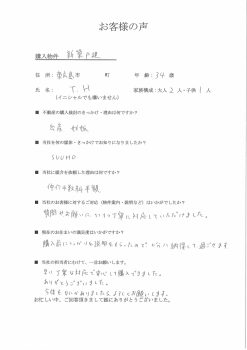 お客様の声
購入物件 新築戸建
住所：東広島市 町 年齢：34歳
氏名：T.H 家族構成：大人2人・子供1人
(イニシャルでも構いません)
■ 不動産の購入検討のきっかけ・理由は何ですか？
出産 妊娠
■ 当社を何の媒体・きっかけでお知りになりましたか？
SUUMO
■ 当社に媒介を依頼した理由は何ですか？
仲介手数料半額
■ 当社のお客様に対するご対応（物件案内・説明など）はいかがでしたか？
質問やお願いに いつも丁寧に対応していただけました。
■ 現在のお住まいの満足度はいかがですか？
購入前にしっかりと説明をもらったので とても納得して過ごせます
■ 当社の担当者にむけて、一言お願いします。
早い丁寧な対応で安心して購入できました。
ありがとうございました。
今後も何かありましたらよろしくお願いします。
お忙しい中、ご回答頂きまして誠にありがとうございました。